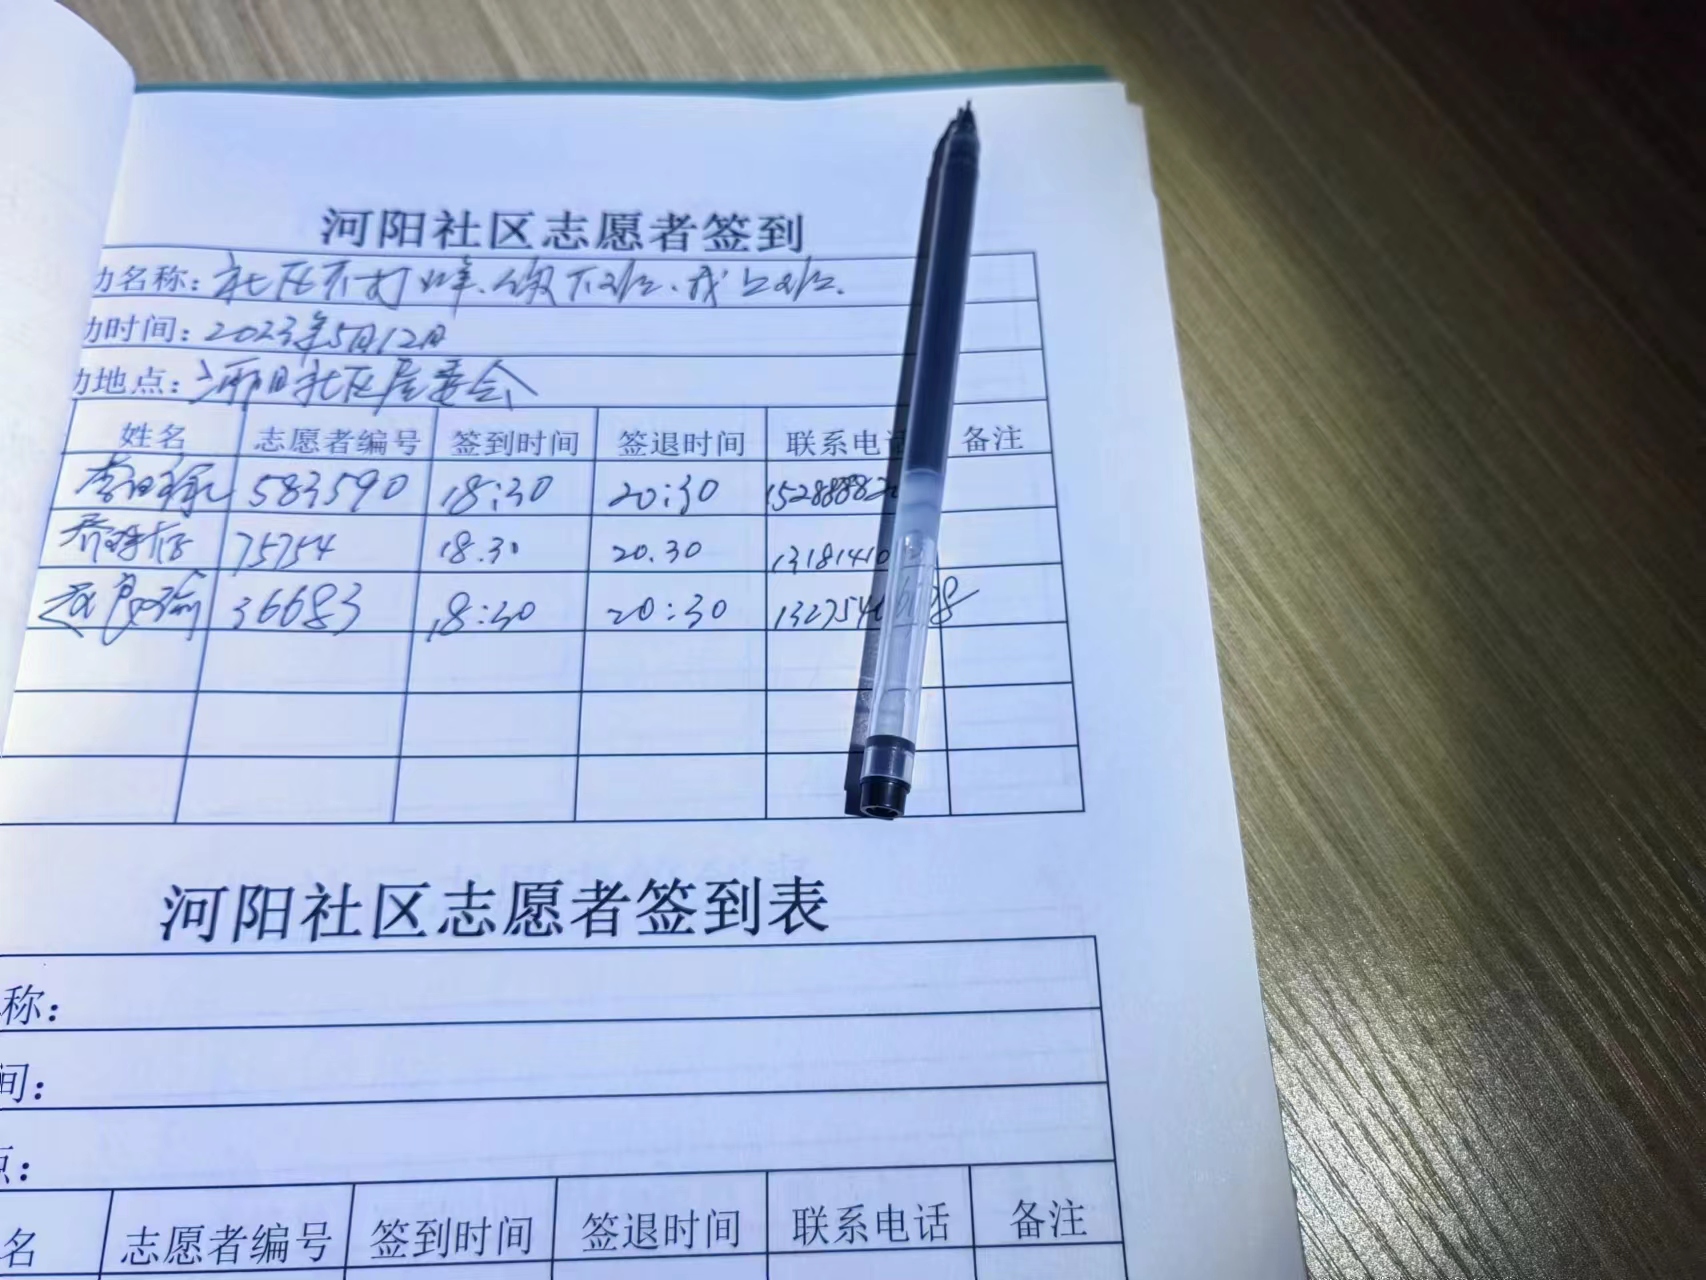 河阳社区志愿者签到
动名称：社区不打烊、你下班、我上班.
动时间：2023年5月12日
动地点：河阳社区居委会
姓名 志愿者编号 签到时间 签退时间 联系电话 备注
583590 18:30 20:30
75754 18.30 20.30 13181410
36683 18:30 20:30
河阳社区志愿者签到表
称：
间：
点：
名 志愿者编号 签到时间 签退时间 联系电话 备注